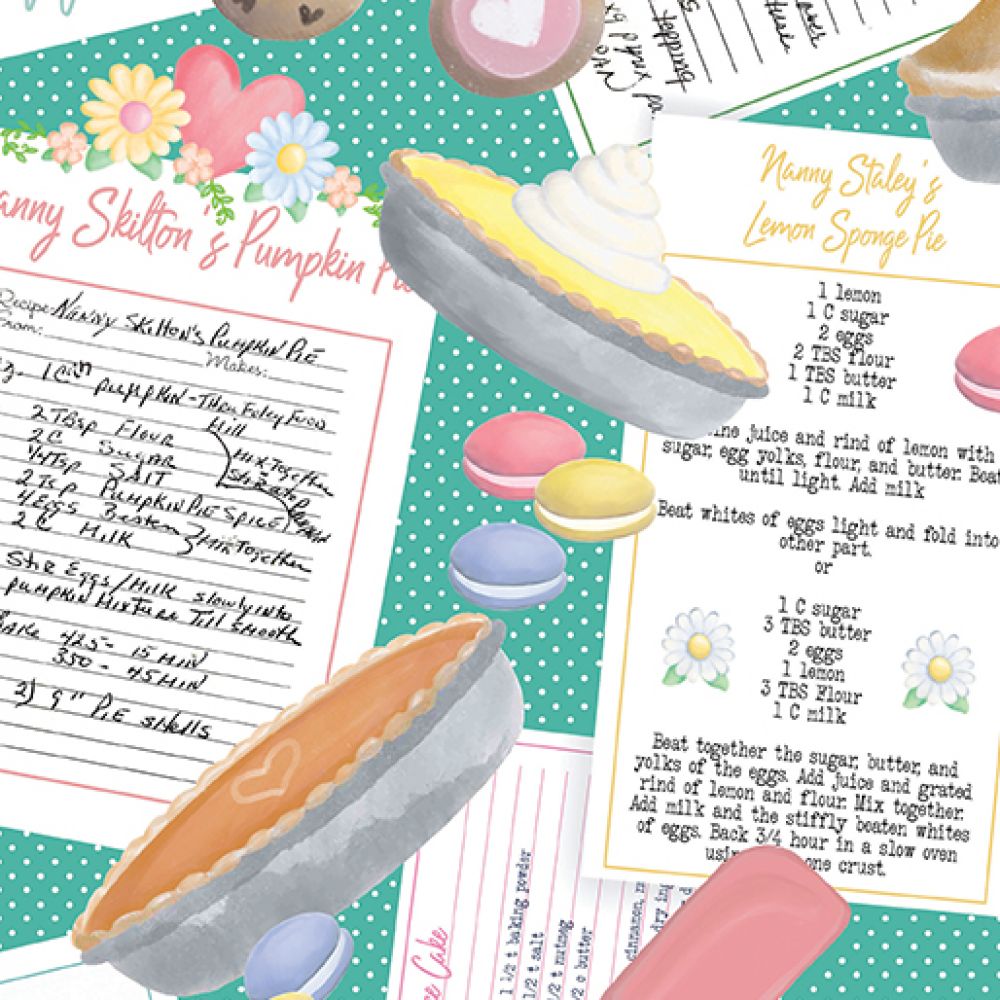 Nanny Skilton's Pumpkin Pie
Recipe: Nanny Skilton's Pumpkin Pie
From:
Makes:
Pumpkin - Thru Foley Food
Mill
2 Tbsp Flour
2 C Sugar
1/4 Tsp Salt
2 Tsp Pumpkin Pie Spice
4 Eggs Beaten
2 C Milk
Mix Together
Mix Together
Stir Eggs/Milk slowly into
Pumpkin Mixture Till Smooth
Bake 425 - 15 Min
350 - 45 Min
2) 9" Pie Shells
Nanny Staley's
Lemon Sponge Pie
1 lemon
1 C sugar
2 eggs
2 TBS flour
1 TBS butter
1 C milk
juice and rind of lemon with
sugar, egg yolks, flour, and butter. Beat
until light. Add milk
Beat whites of eggs light and fold into
other part.
or
1 C sugar
3 TBS butter
2 eggs
1 lemon
3 TBS Flour
1 C milk
Beat together the sugar, butter, and
yolks of the eggs. Add juice and grated
rind of lemon and flour. Mix together.
Add milk and the stiffly beaten whites
of eggs. Back 3/4 hour in a slow oven
one crust.
Cake
1 1/2 t baking powder
1/2 t salt
1/2 t nutmeg
1/2 c butter
cinnamon,
dry